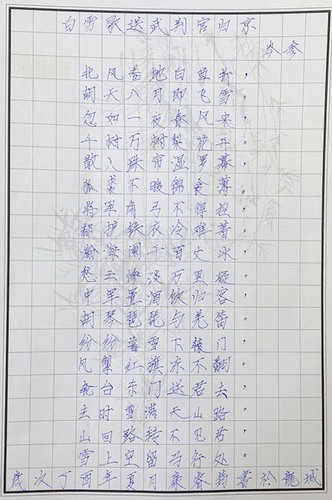 白雪歌送武判官归京
岑参
北风卷地白草折,
胡天八月即飞雪。
忽如一夜春风来,
千树万树梨花开。
散入珠帘湿罗幕,
狐裘不暖锦衾薄。
将军角弓不得控,
都护铁衣冷难着。
瀚海阑干百丈冰,
愁云惨淡万里凝。
中军置酒饮归客,
胡琴琵琶与羌笛。
纷纷暮雪下辕门,
风掣红旗冻不翻。
轮台东门送君去,
去时雪满天山路。
山回路转不见君,
雪上空留马行处。
岁次丁酉年夏月 于龙城